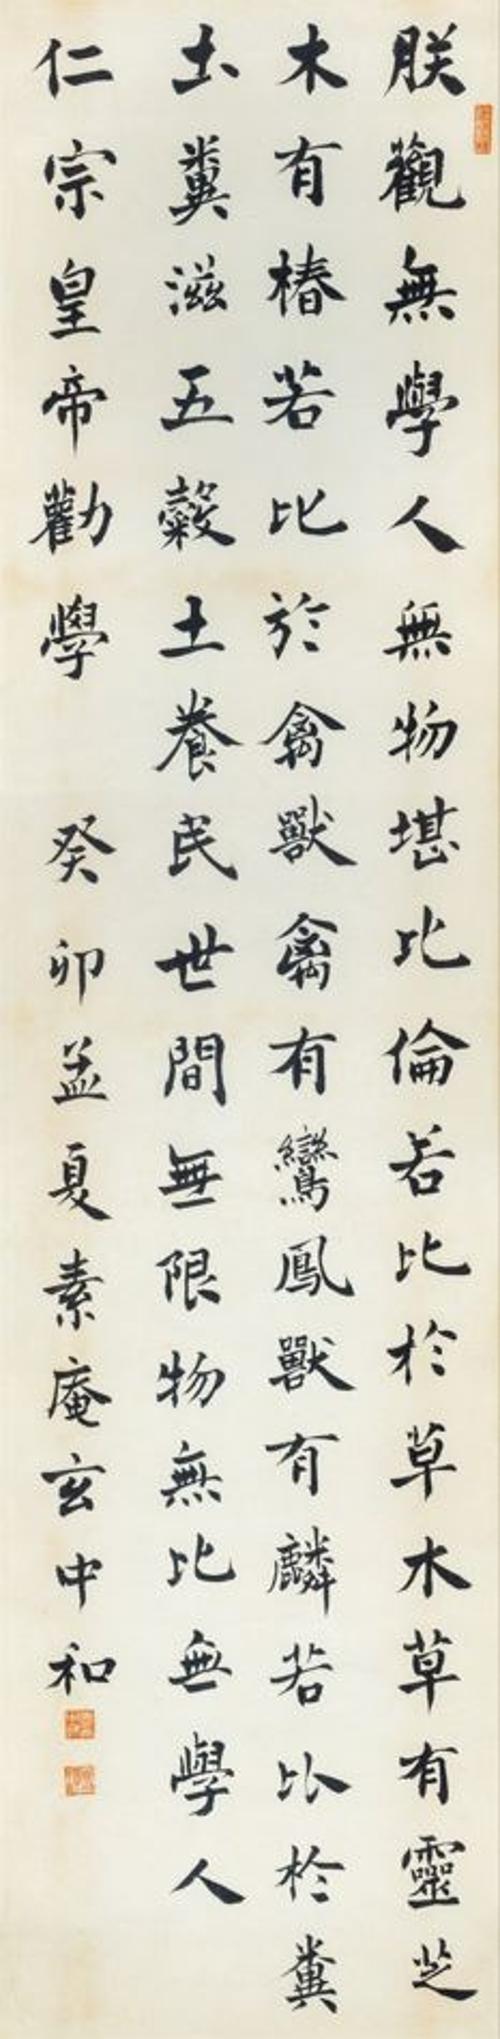 朕觀無學人無物堪比倫若比於草木草有靈芝
木有椿若比於禽獸禽有鸞鳳獸有麟若比於糞
土糞滋五穀土養民世間無限物無比無學人
仁宗皇帝勸學 癸卯孟夏素庵玄中和